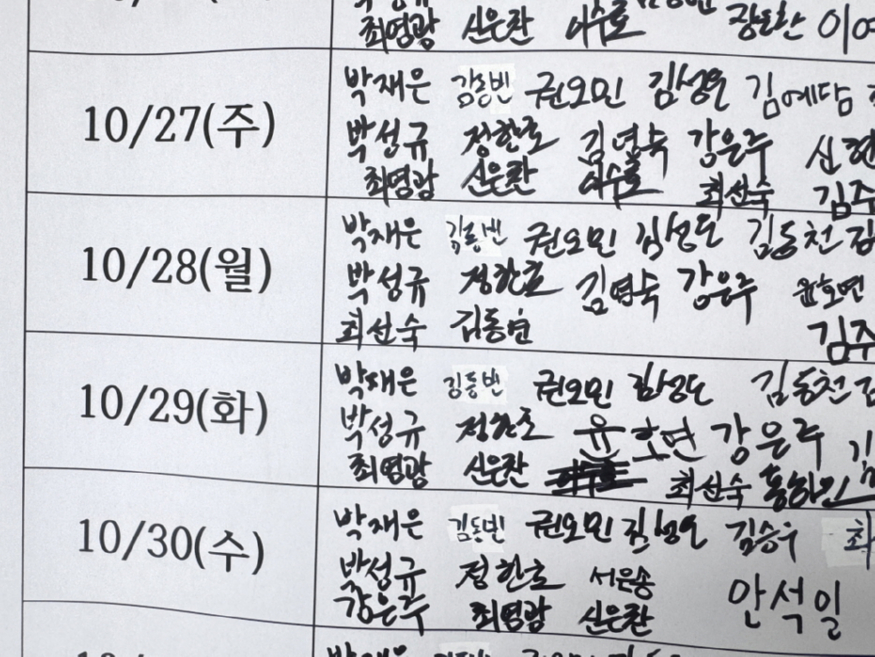 최영광 신은찬 이수호
10/27(주)
박재은 김동빈 권오민 김성도 김예담
박성규 정한호 김영숙 강은주
최영광 신은찬 이수호 최선숙 김주
10/28(월)
박재은 김동빈 권오민 김성도 김동천 김
박성규 정한호 김영숙 강은주 윤호연
최선숙 김동현 김주
10/29(화)
박재은 김동빈 권오민 김성도 김동천 김
박성규 정한호 윤호연 강은주 김
최영광 신은찬 최선숙
10/30(수)
박재은 김동빈 권오민 김성도 김승우 최
박성규 정한호 서은송 안석일
강은주 최영광 신은찬